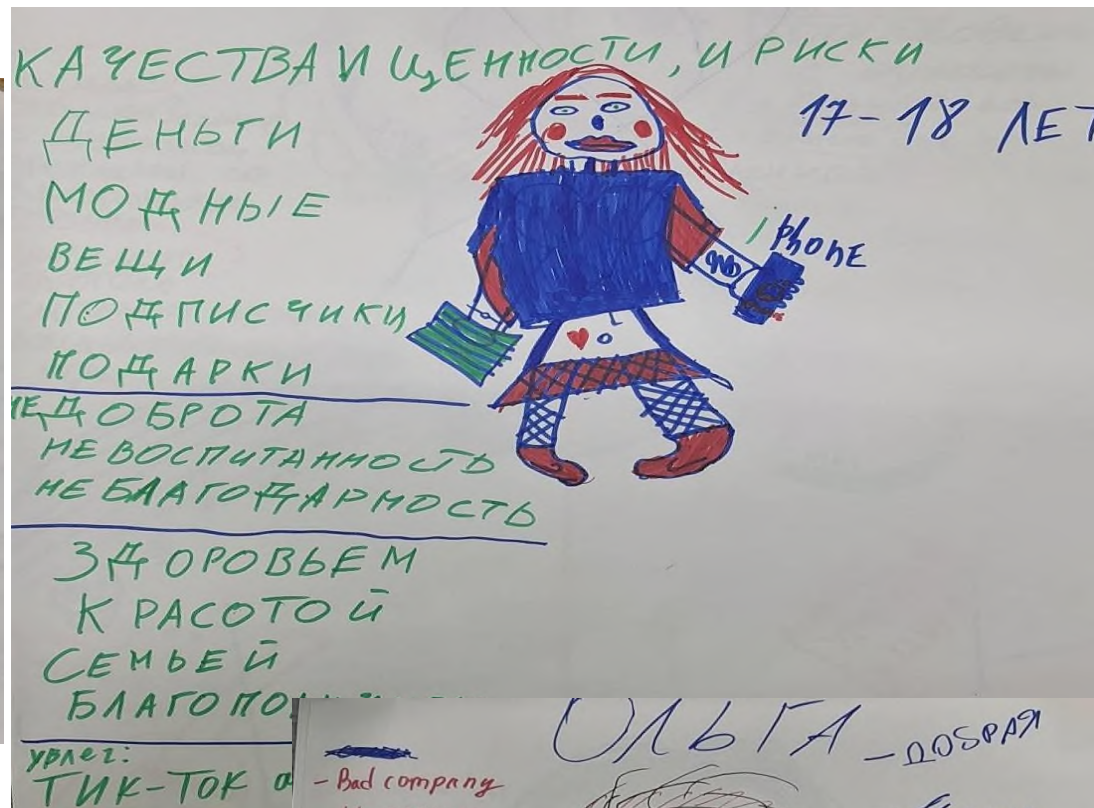 КАЧЕСТВА И ЦЕННОСТИ, И РИСКИ
17-18 ЛЕТ
ДЕНЬГИ
МОДНЫЕ
ВЕЩИ
ПОДПИСЧИКИ
ПОДАРКИ
iphone
НЕДОБРОТА
НЕВОСПИТАННОСТЬ
НЕБЛАГОДАРНОСТЬ
ЗДОРОВЬЕМ
КРАСОТОЙ
СЕМЬЕЙ
увлеч:
ТИК-ТОК
ОЛЬГА - ДОБРАЯ
- Bad company